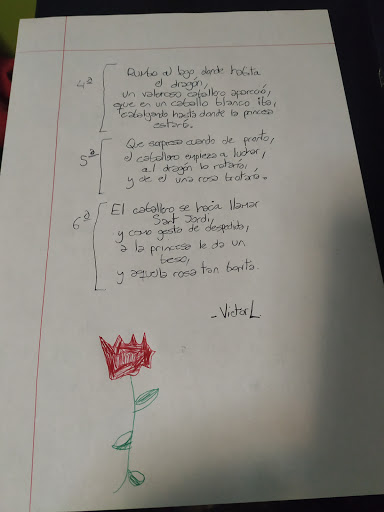 4ª Rumbo al lago donde habita
el dragón,
un valeroso caballero apareció,
que en un caballo blanco iba,
cabalgando hasta donde la princesa
estaría.
5ª Que sorpresa cuando de pronto,
el caballero empieza a luchar,
al dragón lo mataría,
y de el una rosa brotaría.
6ª El caballero se hacía llamar
Sant Jordi,
y como gesto de despedida,
a la princesa le da un
beso,
y aquella rosa tan bonita.
-Victor L